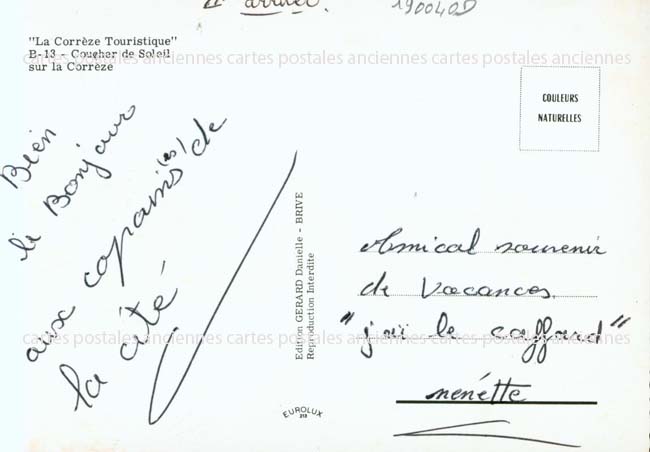 arrivée.
190040D
"La Corrèze Touristique"
B-13 - Coucher de Soleil
sur la Corrèze
COULEURS
NATURELLES
Bien
le Bonjour
aux copains (es) de
la cité
Edition GERARD Danielle - BRIVE
Reproduction Interdite
EUROLUX
Amical souvenir
de Vacances.
"j'ai le caffard"
nenétte
cartes postales anciennes cartes postales anciennes cartes postales anciennes
cartes postales anciennes cartes postales anciennes cartes postales anciennes